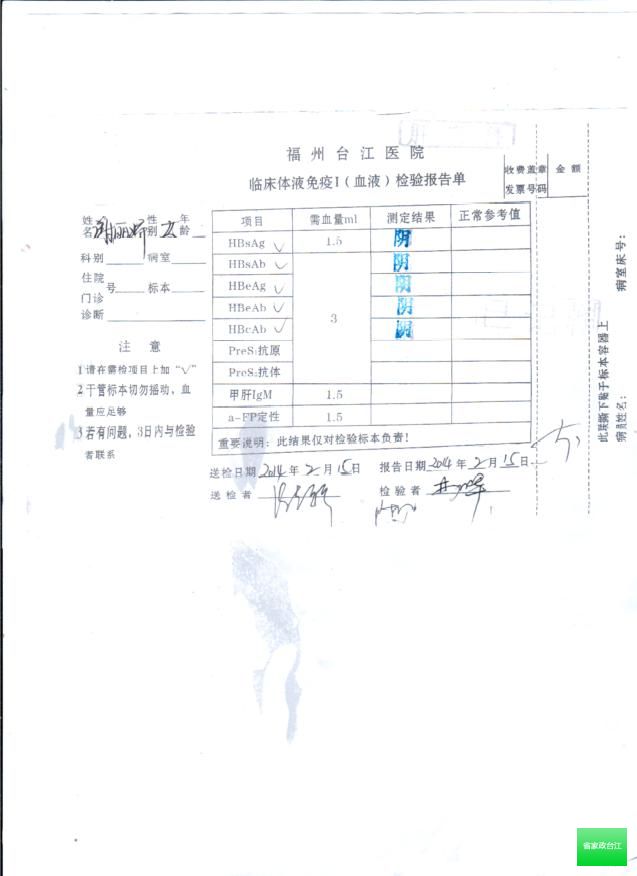 福州台江医院
临床体液免疫I（血液）检验报告单
收费盖章 金额
发票号码
姓名 性别 女 年龄
科别 病室
住院
门诊 号 标本
诊断
注意
1请在需检项目上加“√”
2干管标本切勿摇动，血
量应足够
3若有问题，3日内与检验
者联系
项目 需血量ml 测定结果 正常参考值
HBsAg √ 1.5 阴
HBsAb √ 阴
HBeAg √ 阴
HBeAb √ 3 阴
HBcAb √ 阴
PreS₁抗原
PreS₂抗体
甲肝IgM 1.5
a-FP定性 1.5
重要说明：此结果仅对检验标本负责！
送检日期2014年2月15日 报告日期2014年2月15日
送检者 检验者
此联撕下贴于标本容器上
病员姓名： 病室床号：
省家政台江